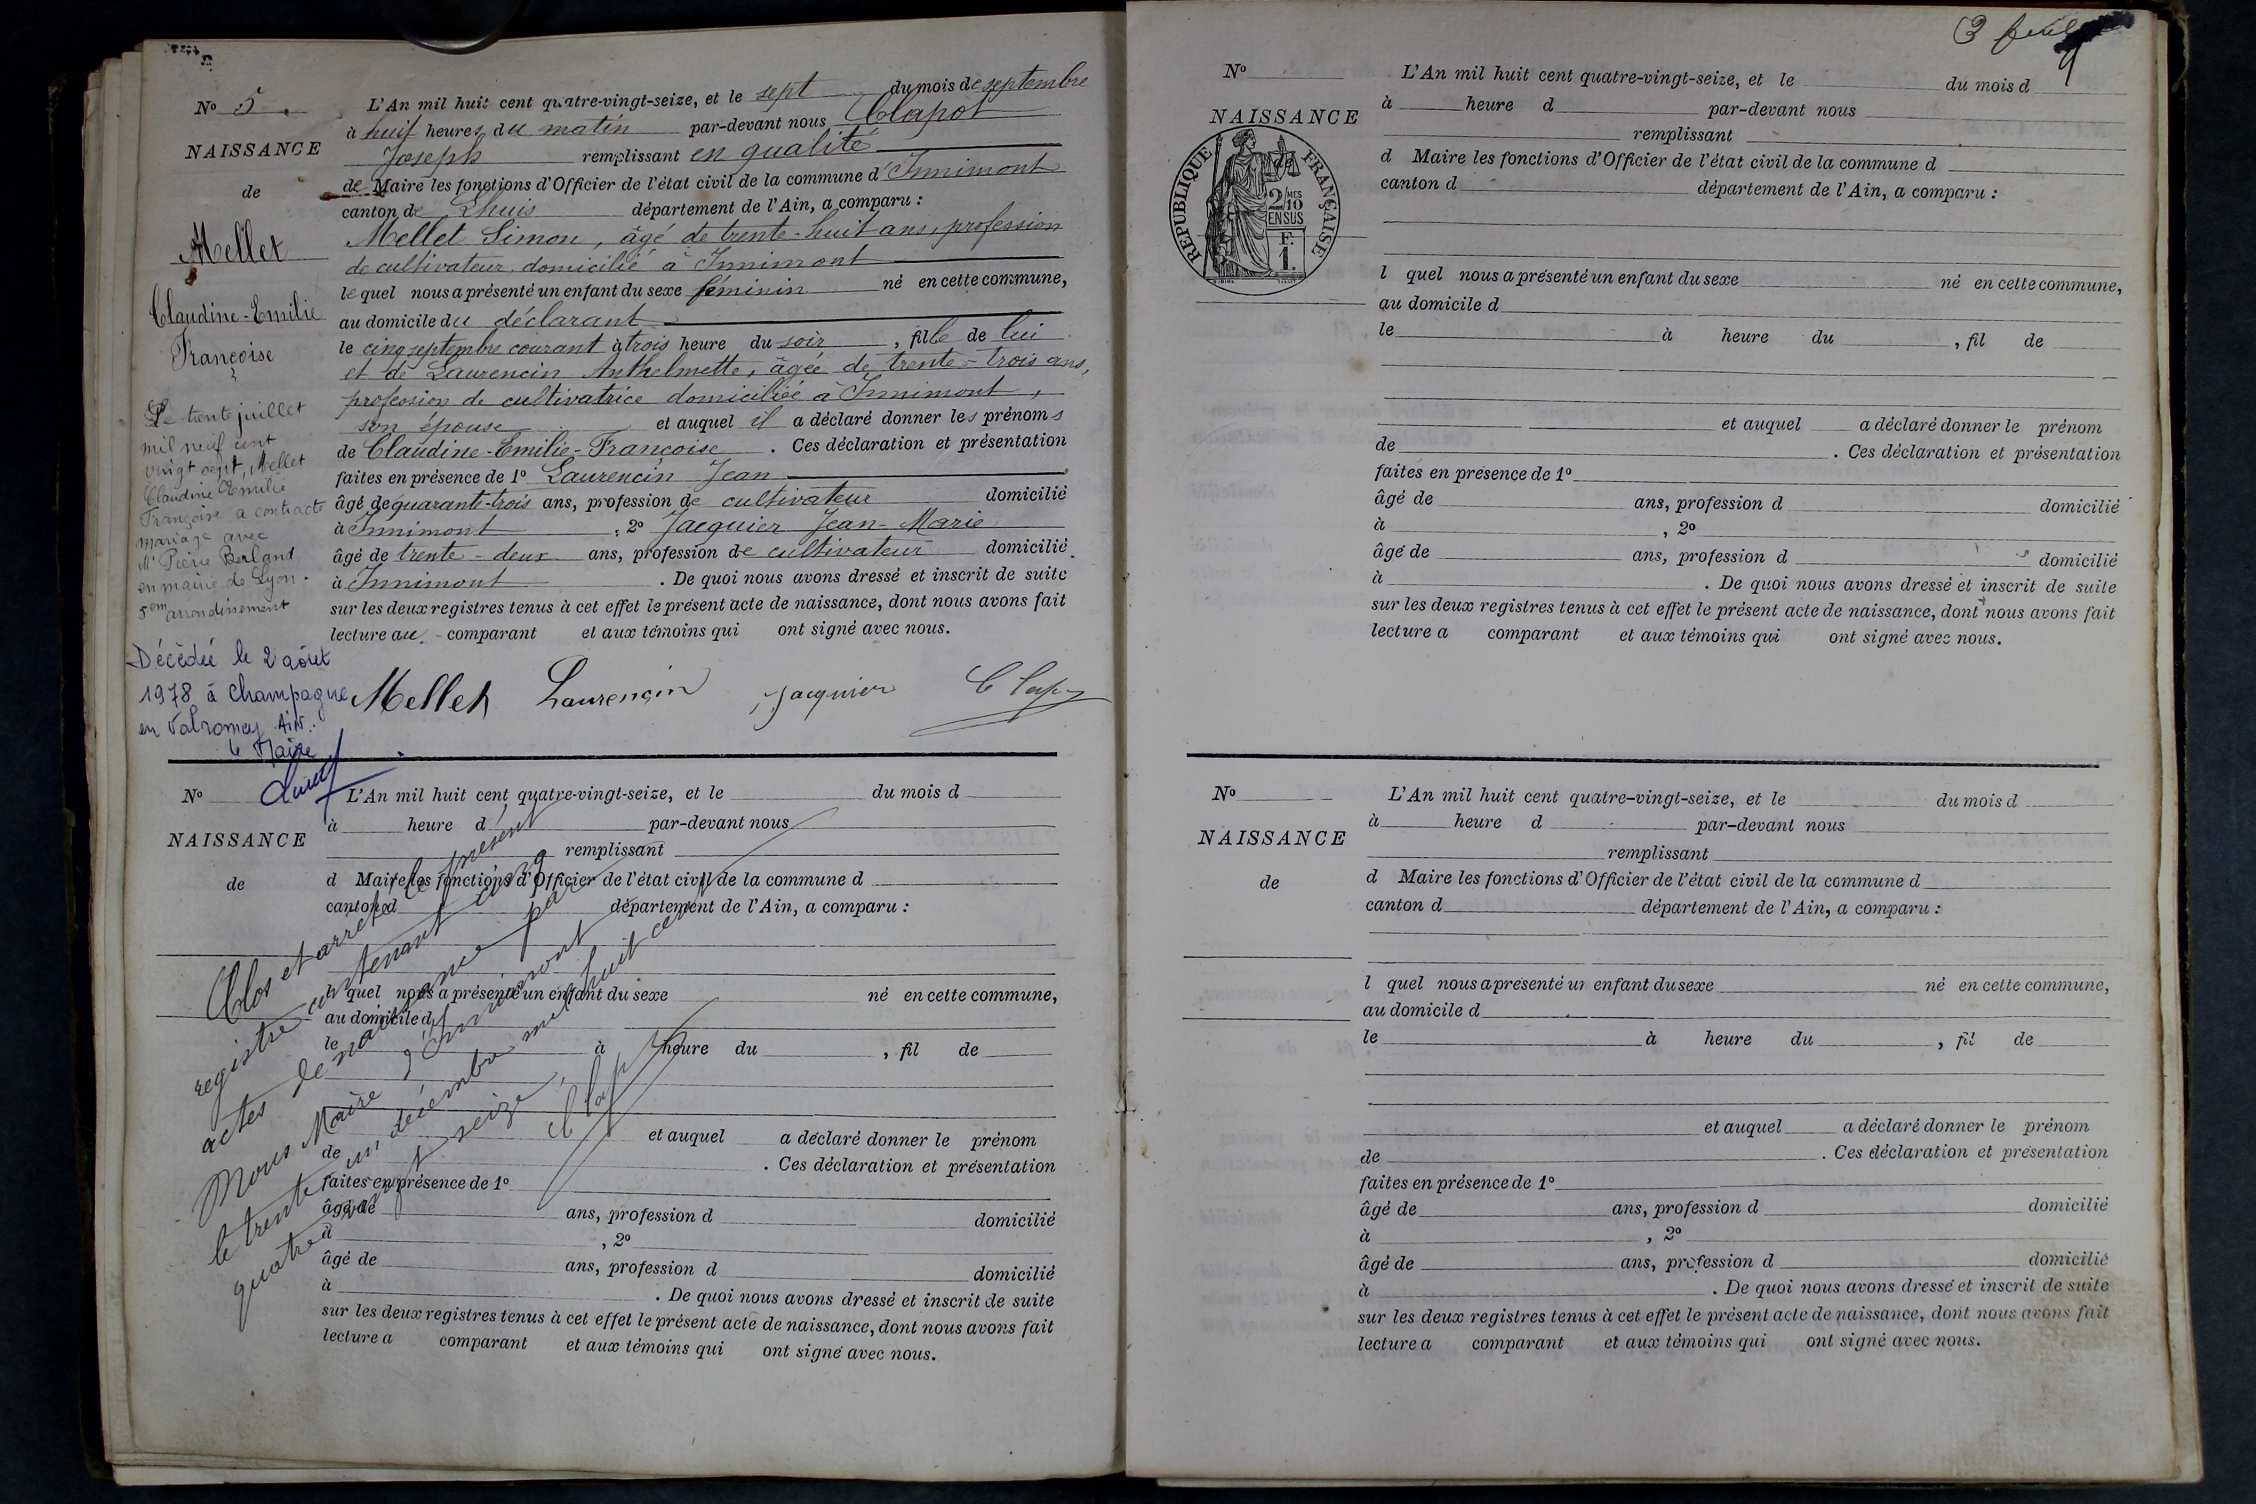 No 5.
NAISSANCE
de
Mellet
Claudine-Emilie
Françoise
L'An mil huit cent quatre-vingt-seize, et le sept du mois de septembre
à huit heures du matin par-devant nous Clapot
Joseph remplissant en qualité
de Maire les fonctions d'Officier de l'état civil de la commune d'Innimont
canton de Lhuis département de l'Ain, a comparu :
Mellet Simon, âgé de trente-huit ans, profession
de cultivateur domicilié à Innimont
lequel nous a présenté un enfant du sexe féminin né en cette commune,
au domicile du déclarant
le cinq septembre courant à trois heure du soir, fille de lui
et de Laurencin Anthelmette, âgée de trente-trois ans,
profession de cultivatrice domiciliée à Innimont,
son épouse et auquel il a déclaré donner les prénoms
de Claudine-Emilie-Françoise. Ces déclaration et présentation
faites en présence de 1o Laurencin Jean
âgé de quarante-trois ans, profession de cultivateur domicilié
à Innimont, 2o Jacquier Jean-Marie
âgé de trente-deux ans, profession de cultivateur domicilié
à Innimont. De quoi nous avons dressé et inscrit de suite
sur les deux registres tenus à cet effet le présent acte de naissance, dont nous avons fait
lecture au comparant et aux témoins qui ont signé avec nous.
Mellet Laurencin Jacquier
Le trente juillet
mil neuf cent
vingt sept, Mellet
Claudine Emilie
Françoise a contracté
mariage avec
Mr Pierre Berland
en mairie de Lyon.
5em arrondissement
Décédée le 2 août
1978 à Champagne
en Valromey Ain.
le Maire
No
NAISSANCE
de
L'An mil huit cent quatre-vingt-seize, et le du mois d
à heure d par-devant nous
remplissant
d Maire les fonctions d'Officier de l'état civil de la commune d
canton d département de l'Ain, a comparu :
l quel nous a présenté un enfant du sexe né en cette commune,
au domicile d
le à heure du , fil de
et auquel a déclaré donner le prénom
de . Ces déclaration et présentation
faites en présence de 1o
âgé de ans, profession d domicilié
à , 2o
âgé de ans, profession d domicilié
à . De quoi nous avons dressé et inscrit de suite
sur les deux registres tenus à cet effet le présent acte de naissance, dont nous avons fait
lecture a comparant et aux témoins qui ont signé avec nous.
Clos et arrêté le présent
registre contenant cinq
actes de naissance par
Nous Maire d'Innimont
le trente un décembre mil huit cent
quatre vingt seize,
3 feuil
No
NAISSANCE
RÉPUBLIQUE FRANÇAISE
2/10MES
EN SUS
F.
1.
L'An mil huit cent quatre-vingt-seize, et le du mois d
à heure d par-devant nous
remplissant
d Maire les fonctions d'Officier de l'état civil de la commune d
canton d département de l'Ain, a comparu :
l quel nous a présenté un enfant du sexe né en cette commune,
au domicile d
le à heure du , fil de
et auquel a déclaré donner le prénom
de . Ces déclaration et présentation
faites en présence de 1o
âgé de ans, profession d domicilié
à , 2o
âgé de ans, profession d domicilié
à . De quoi nous avons dressé et inscrit de suite
sur les deux registres tenus à cet effet le présent acte de naissance, dont nous avons fait
lecture a comparant et aux témoins qui ont signé avec nous.
No
NAISSANCE
de
L'An mil huit cent quatre-vingt-seize, et le du mois d
à heure d par-devant nous
remplissant
d Maire les fonctions d'Officier de l'état civil de la commune d
canton d département de l'Ain, a comparu :
l quel nous a présenté un enfant du sexe né en cette commune,
au domicile d
le à heure du , fil de
et auquel a déclaré donner le prénom
de . Ces déclaration et présentation
faites en présence de 1o
âgé de ans, profession d domicilié
à , 2o
âgé de ans, profession d domicilié
à . De quoi nous avons dressé et inscrit de suite
sur les deux registres tenus à cet effet le présent acte de naissance, dont nous avons fait
lecture a comparant et aux témoins qui ont signé avec nous.